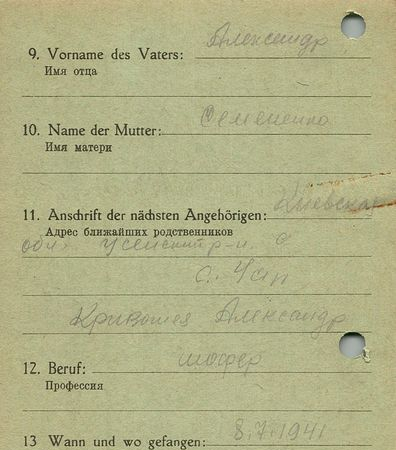 9. Vorname des Vaters: Александр
Имя отца
10. Name der Mutter: Семененко
Имя матери
11. Anschrift der nächsten Angehörigen: Киевская
Адрес ближайших родственников
обл. р-н. с
с.
Кривошея Александр
12. Beruf: шофер
Профессия
13 Wann und wo gefangen: 8.7.1941